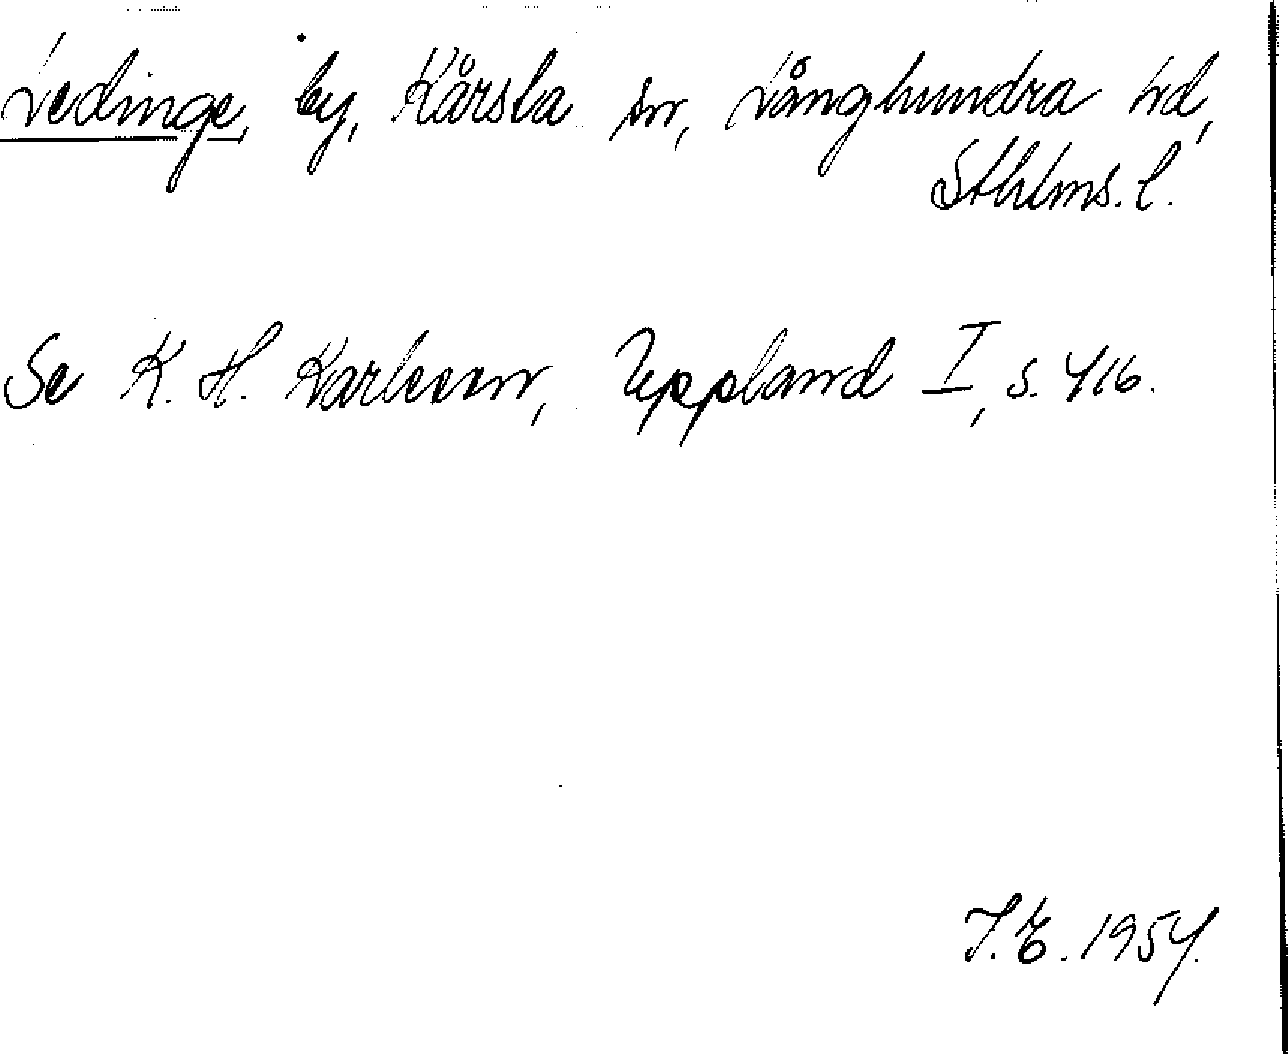 Ledinge, by, Kårsta sn, Långhundra hd,
Sthlms. l.
Se K. H. Karlsson, Uppland I, s. 416.
T.E. 1954.